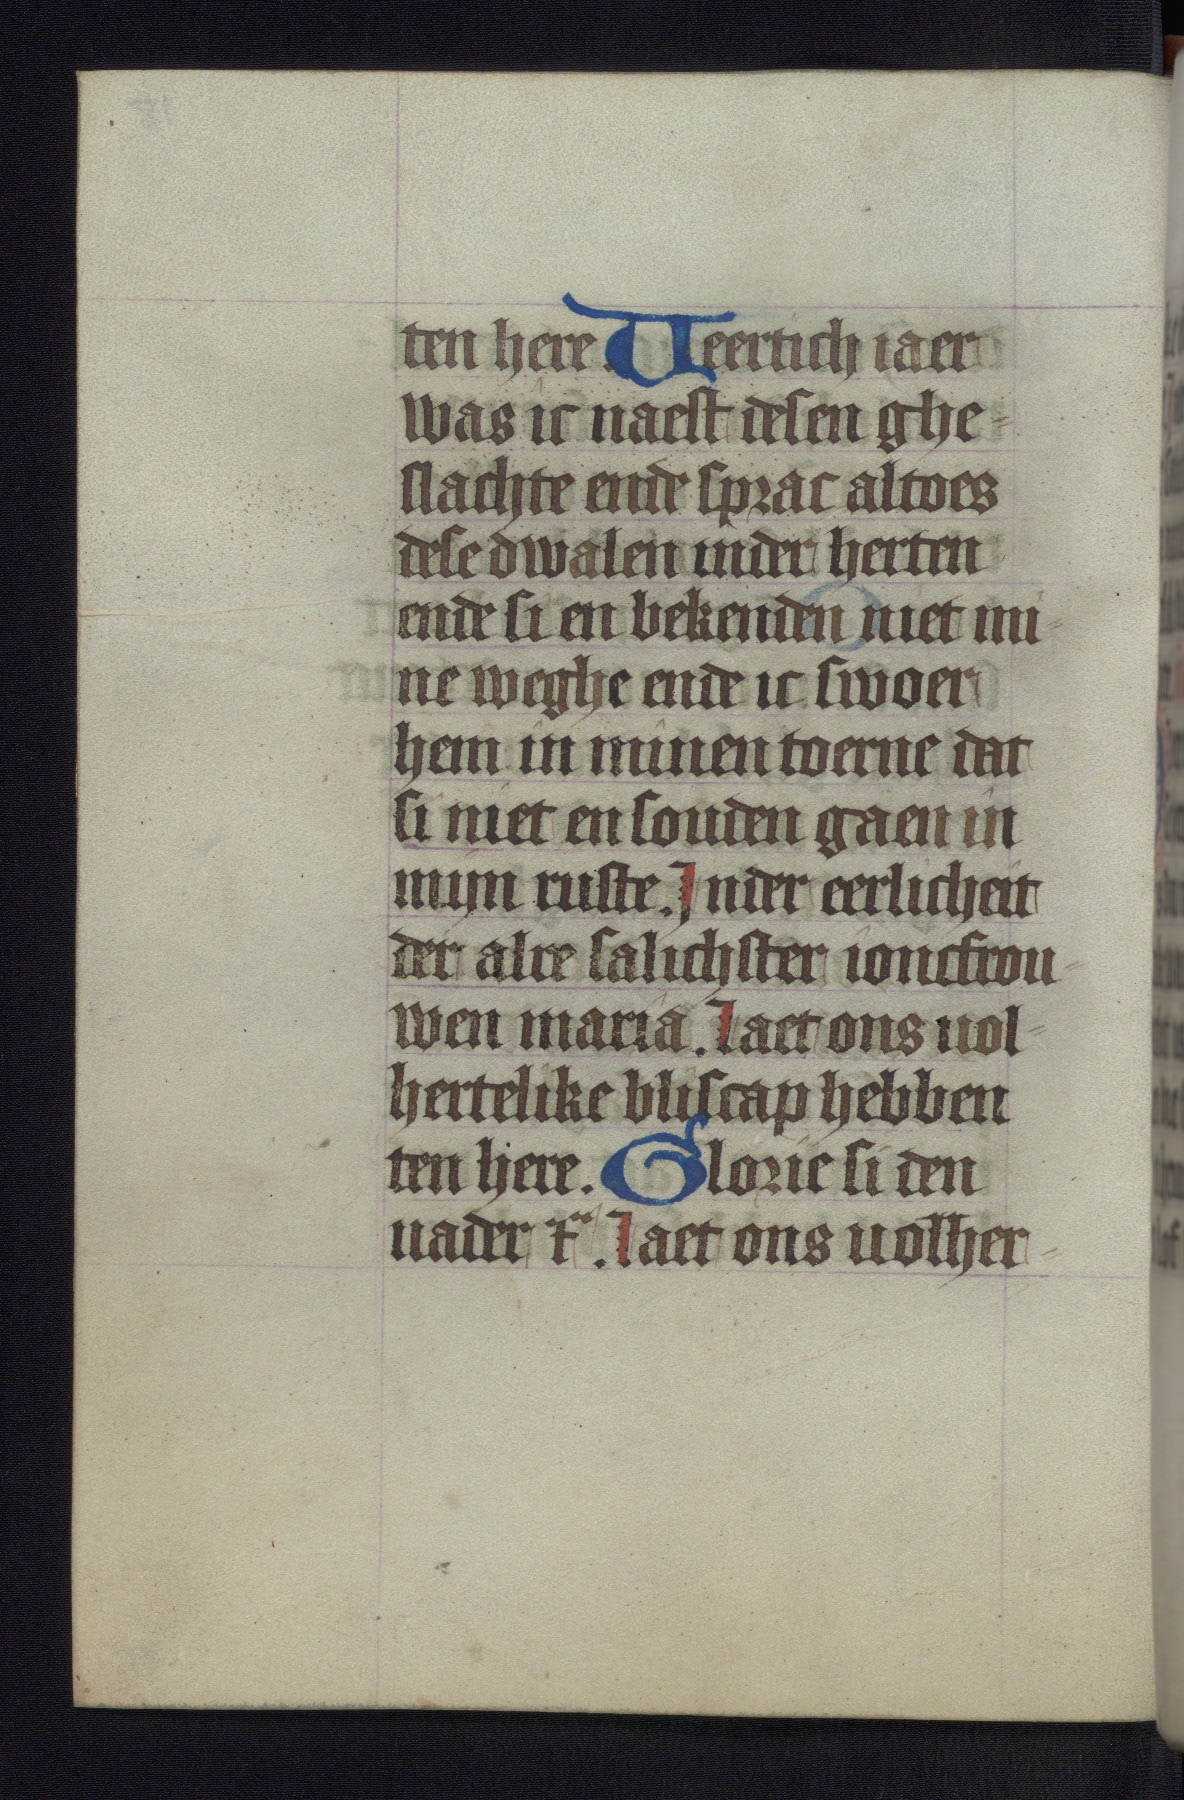 ten here. Ueertich iaer
was ic naest desen ghe-
slachte ende sprac altoes
dese dwalen inder herten
ende si en bekenden niet mi-
ne weghe ende ic swoer
hem in minen toerne dat
si niet en souden gaen in
mijn ruste. Inder eerlicheit
der alre salichster ioncfrou-
wen maria. laet ons uol-
hertelike bliscap hebben
ten here. Glorie si den
uader . laet ons uolher-